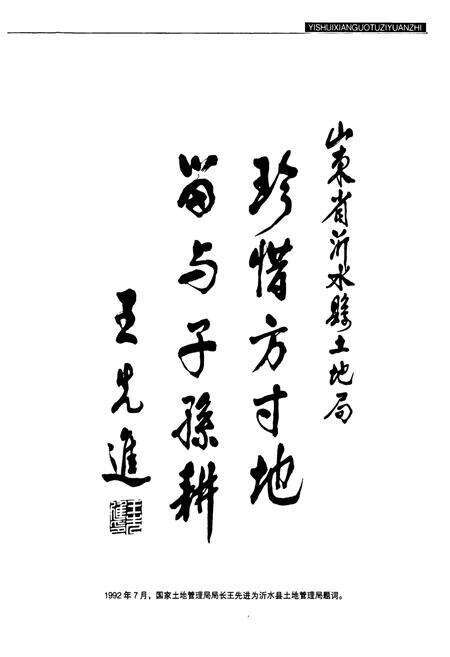 YISHUIXIANGUOTUZIYUANZHI
山東省沂水縣土地局
珍惜方寸地
留与子孫耕
王先進
1992 年 7 月，国家土地管理局局长王先进为沂水县土地管理局题词。